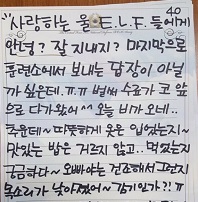 40
"사랑하는 울 E.L.F. 들에게
안녕? 잘 지내지? 마지막으로
훈련소에서 보내는 답장이 아닐
까 싶은데.ㅠㅠ 벌써 수료가 코 앞
으로 다가왔어^^ 오늘 비가 오네..
추운데~ 따뜻하게 옷은 입었는지~
맛있는 밥은 거르지 않고.. 먹었는지
궁금하다~ 오빠야는 건조해서 그런지
목소리가 낮아졌어~ 감기인가?! ㅠ